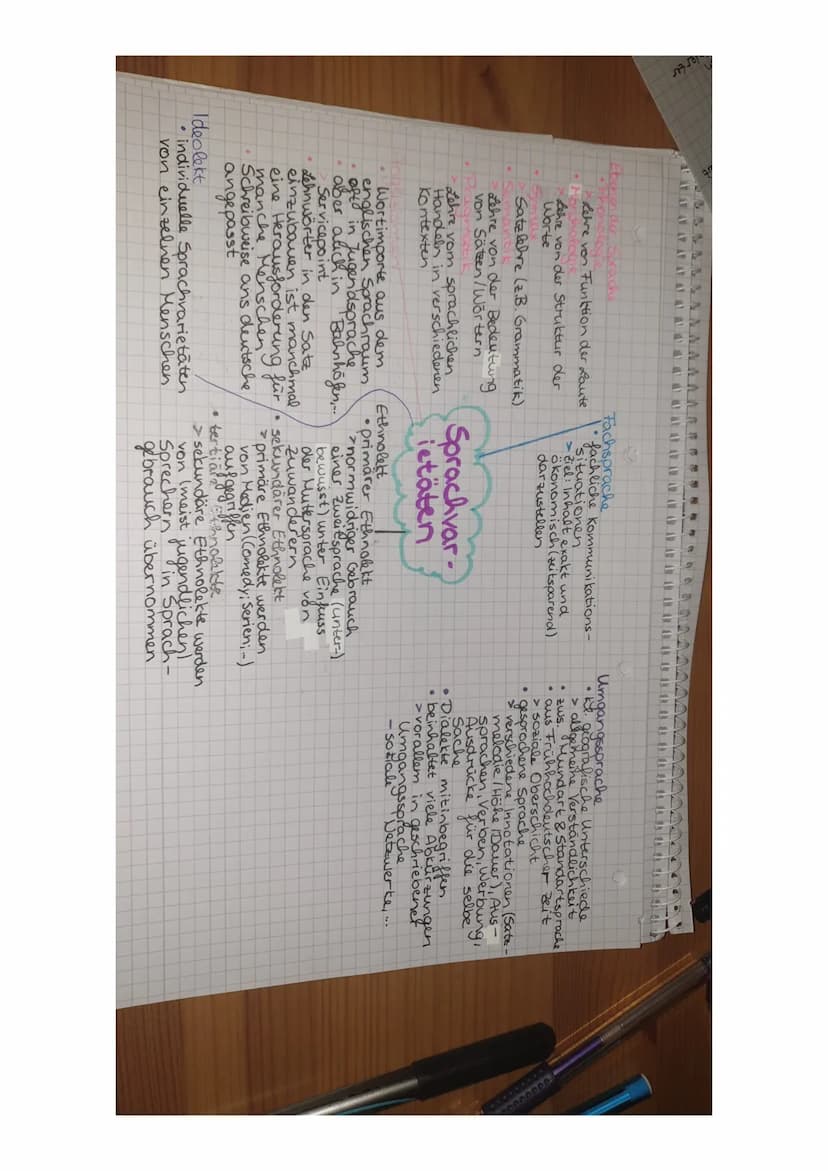 Ebenen der Sprache
• Phonologie
> Lehre von Funktion der Laute
• Morphologie
> Lehre von der Struktur der
Worte
• Syntax
> Satzlehre (z.B. Grammatik)
• Semantik
> Lehre von der Bedeutung
von Sätzen/Wörtern
• Pragmatik
> Lehre vom sprachlichen
Handeln in verschiedenen
Kontexten
• Wortimporte aus dem
englischen Sprachraum
• oft in Jugendsprache
• aber auch in Bahnhöfen,...
> Servicepoint
• Lehnwörter in den Satz
einzubauen ist manchmal
eine Herausforderung für
manche Menschen
• Schreibweise ans deutsche
angepasst
Ideolekt
• individuelle Sprachvarietäten
von einzelnen Menschen
Fachsprache
• fachliche Kommunikations-
situationen
> Ziel: Inhalt exakt und
ökonomisch (zeitsparend)
darzustellen
Sprachvar-
ietäten
Ethnolekt
• primärer Ethnolekt
> normwidriger Gebrauch
einer Zweitsprache (unter-
bewusst) unter Einfluss
der Muttersprache von
Zuwanderern
• sekundärer Ethnolekt
> primäre Ethnolekte werden
von Medien (Comedy, Serien,-)
aufgegriffen
• tertiäre Ethnolekte
> sekundäre Ethnolekte werden
von (meist jugendlichen)
Sprechern in Sprach-
gebrauch übernommen
Umgangssprache
• geografische Unterschiede
> allgemeine Verständlichkeit
• zws. Mundart & Standartsprache
• aus Frühhochdeutscher Zeit
> soziale Oberschicht
• gesprochene Sprache
> verschiedene Innotationen (Satz-
melodie/Höhe/Dauer), Aus-
sprachen, Verben, Werbung,
Ausdrücke für die selbe
Sache
• Dialekte mitinbegriffen
• beinhaltet viele Abkürzungen
> vorallem in geschriebener
Umgangssprache
- soziale Netzwerke,...